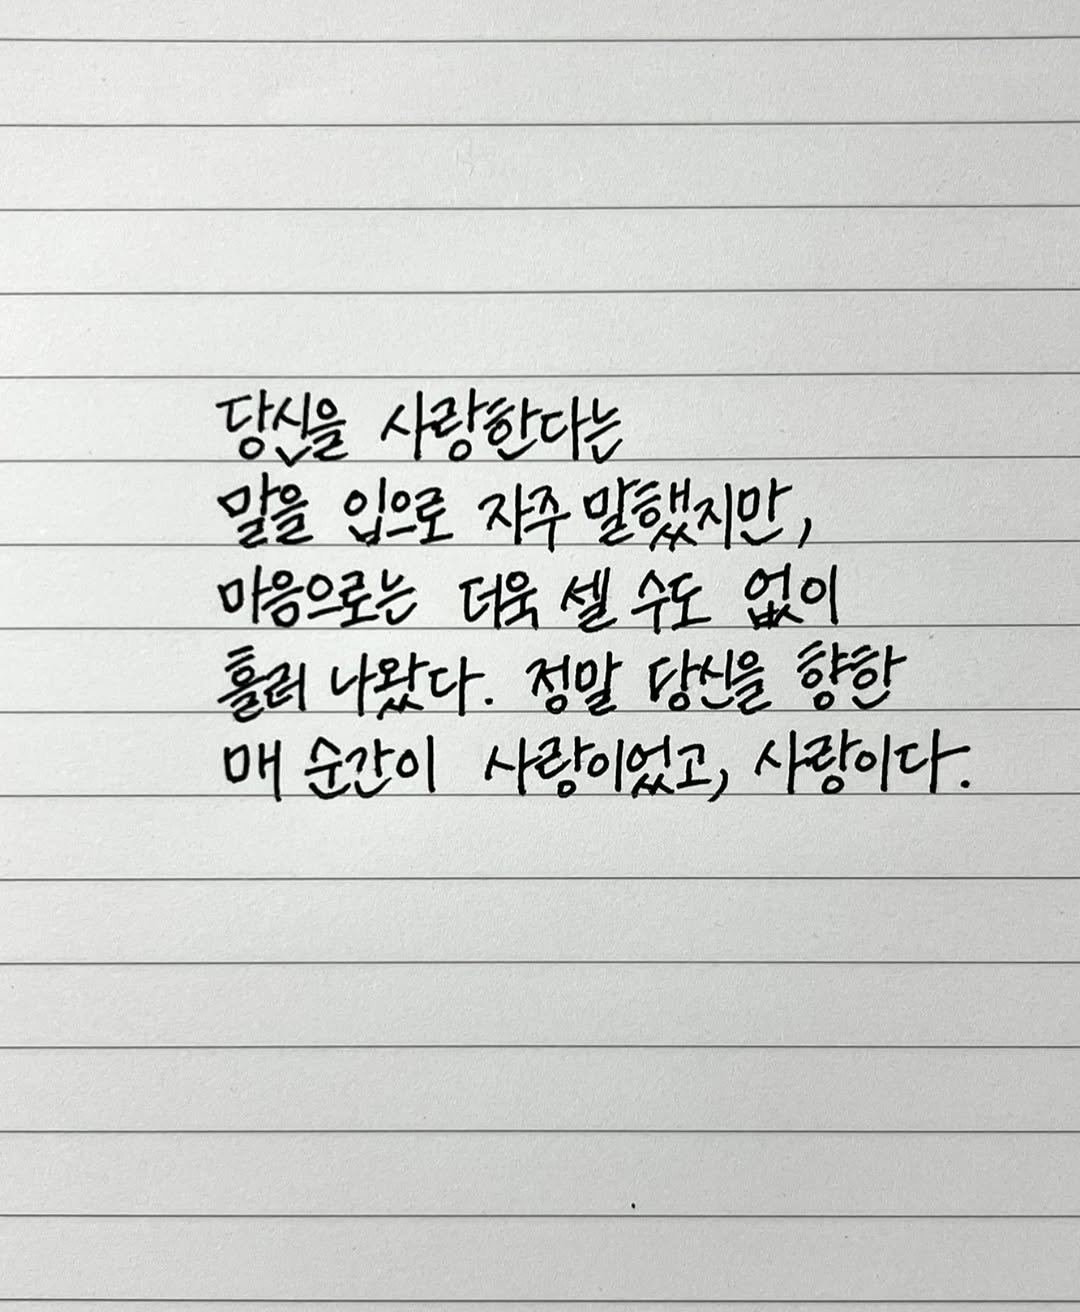 당신을 사랑한다는
말을 입으로 자주 말했지만,
마음으로는 더욱 셀 수도 없이
흘러 나왔다. 정말 당신을 향한
매 순간이 사랑이었고, 사랑이다.